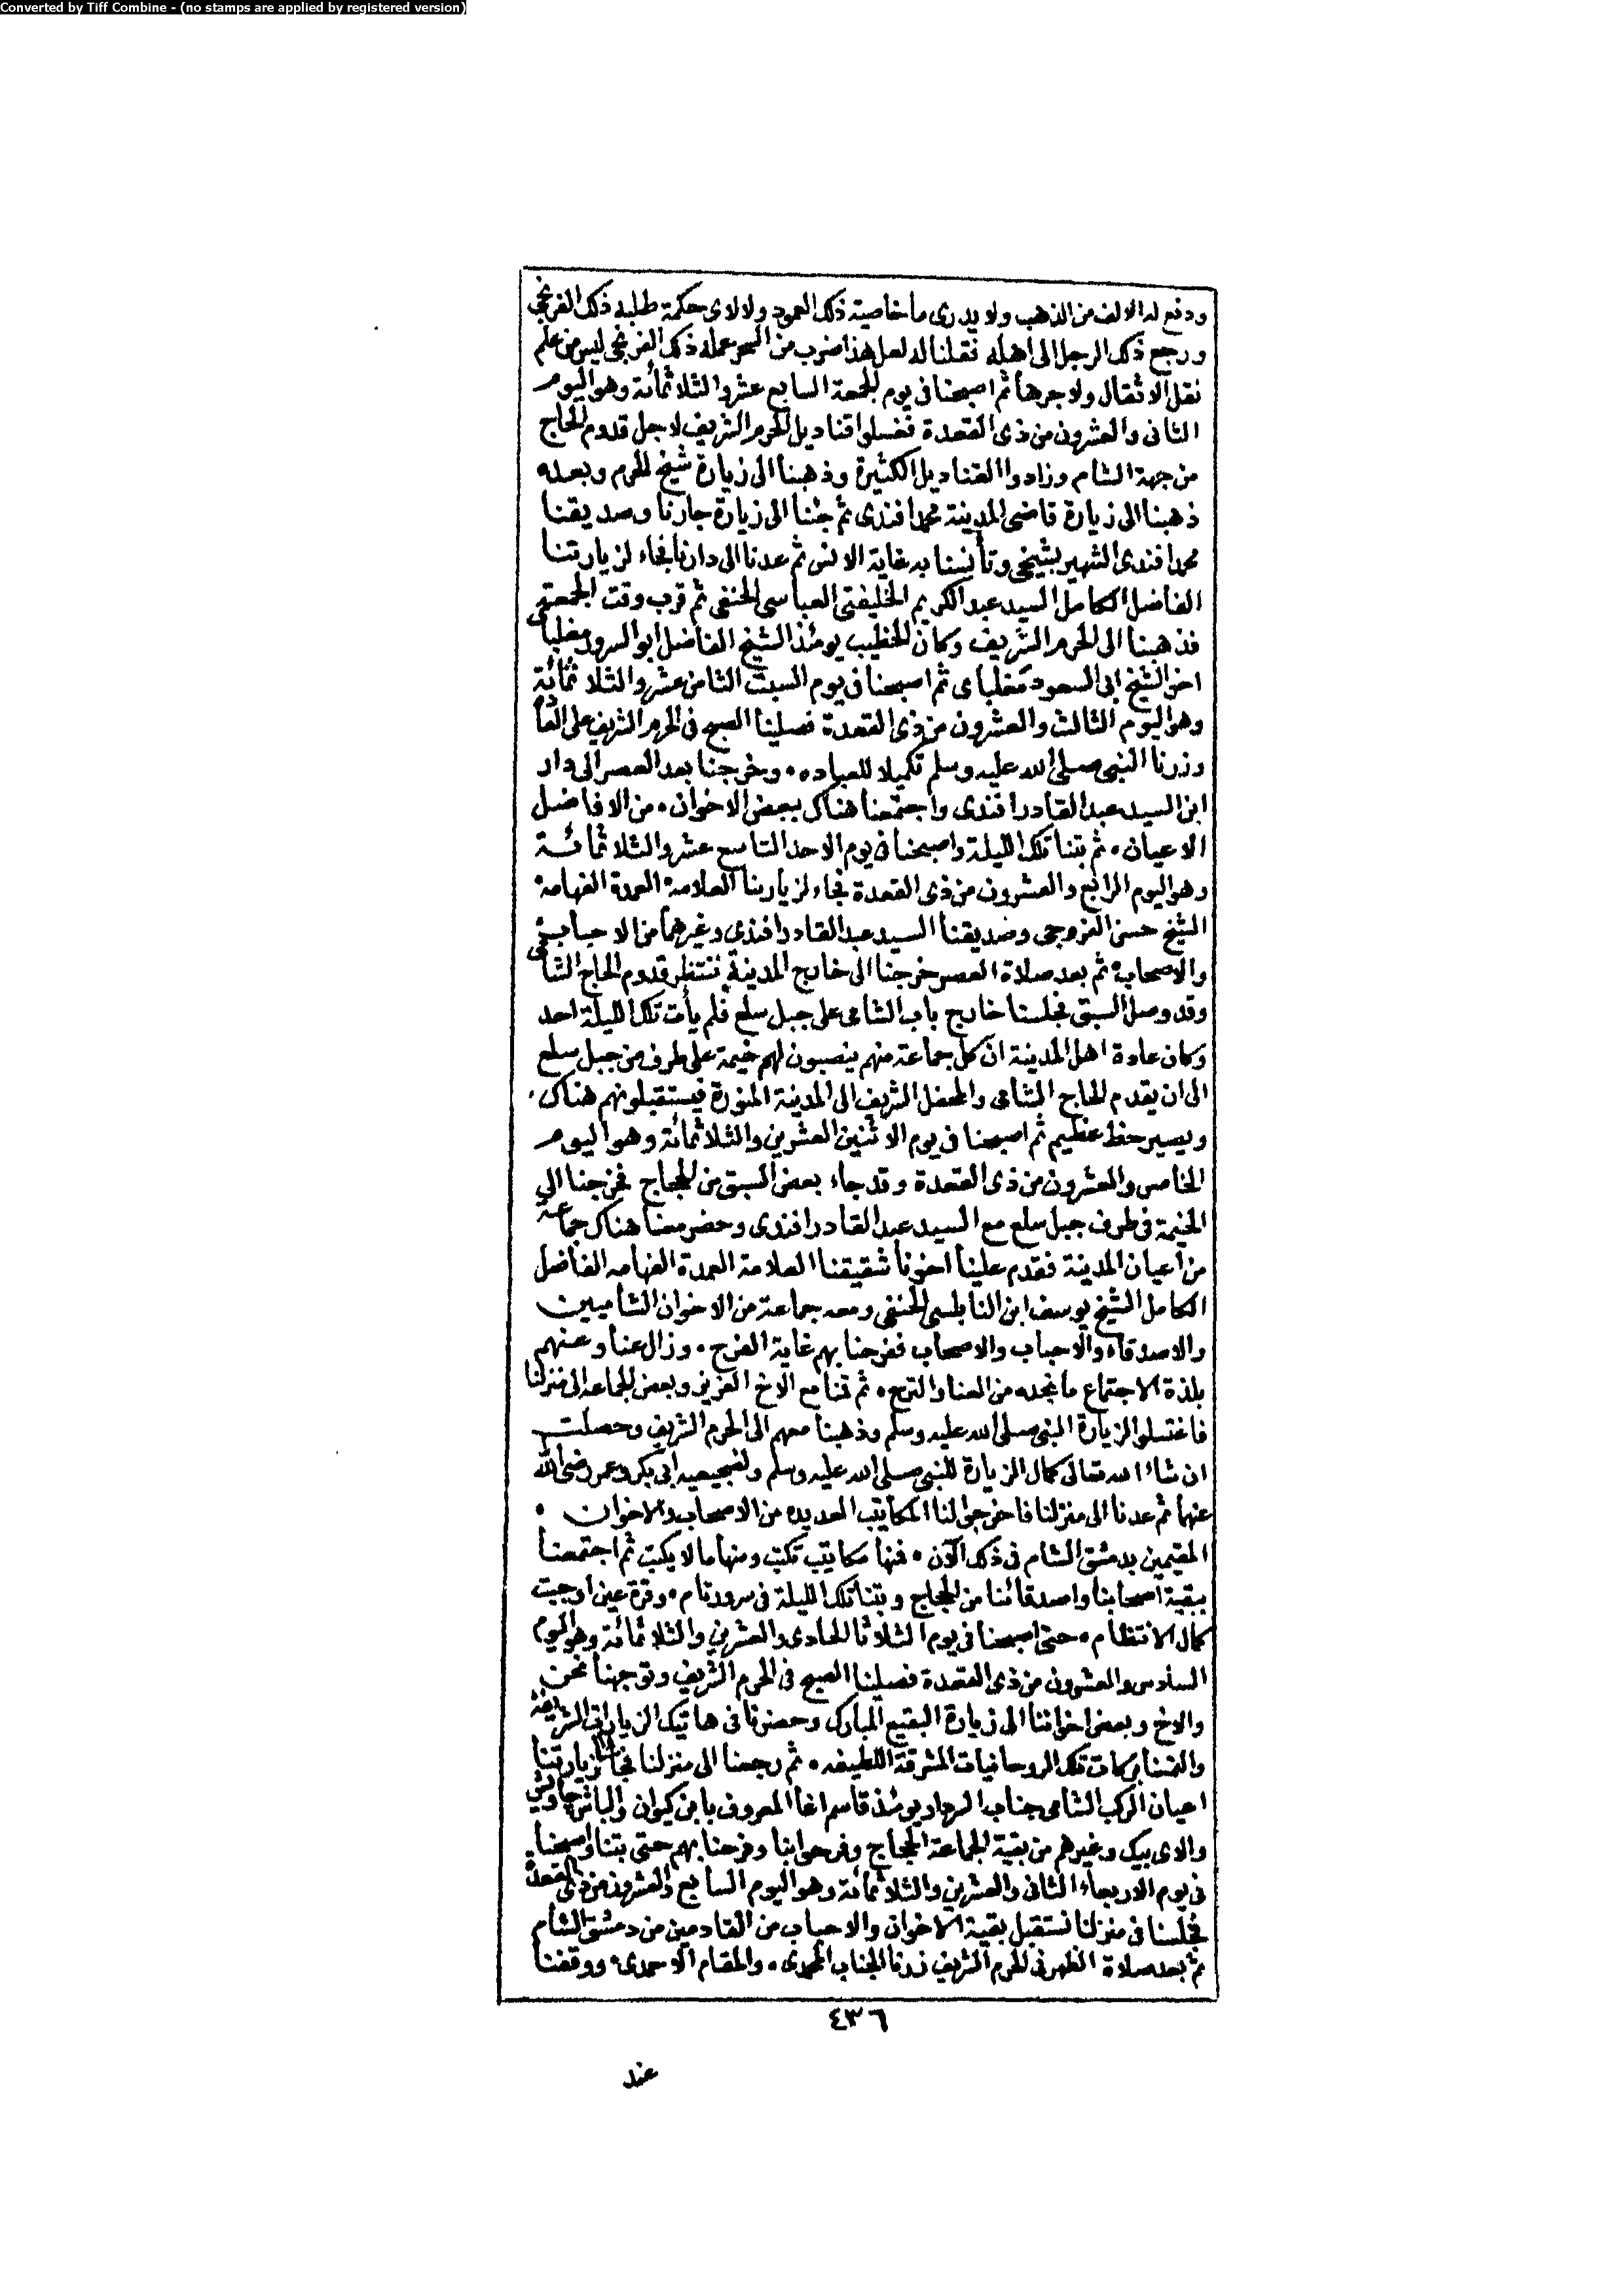 Converted by Tiff Combine - (no stamps are applied by registered version)
ودفع له الالف من الذهب ولا يدرى ما خاصية ذلك العمود ولا لاى حكمة طلبه ذلك الفرنجى
ورجع ذلك الرجل الى اهله فقلنا له لعل هذا ضرب من السحر عمله ذلك الفرنجى ليس من علم
نقل الاثقال ولا جرها ثم اصبحنا فى يوم الجمعة السابع عشر والثلاثمائة وهو اليوم
الثانى والعشرون من ذى القعدة فغسلوا قناديل الحرم الشريف لاجل قدوم الحاج
من جهة الشام وزادوا القناديل الكثيرة وذهبنا الى زيارة شيخ الحرم وبعده
ذهبنا الى زيارة قاضى المدينة محمد افندى ثم جئنا الى زيارة جارنا وصديقنا
محمد افندى الشهير بشيخى وتأنسنا به غاية الانس ثم عدنا الى دارنا فجاء لزيارتنا
الفاضل الكامل السيد عبد الكريم الخليفتى العباسى الحنفى ثم قرب وقت الجمعة
فذهبنا الى الحرم الشريف وكان الخطيب يومئذ الشيخ الفاضل ابو السرور مغلباى
اخو الشيخ ابى السعود مغلباى ثم اصبحنا فى يوم السبت الثامن عشر والثلاثمائة
وهو اليوم الثالث والعشرون من ذى القعدة فصلينا الصبح فى الحرم الشريف على العا
وزرنا النبى صلى الله عليه وسلم تكميلا للعباده ٠ وخرجنا بعد العصر الى دار
ابن السيد عبد القادر افندى واجتمعنا هناك ببعض الاخوان ٠ من الافاضل
الاعيان ٠ ثم بتنا تلك الليلة واصبحنا فى يوم الاحد التاسع عشر والثلاثمائة
وهو اليوم الرابع والعشرون من ذى القعدة فجاء لزيارتنا العلامة العمدة الفهامة
الشيخ حسن وصديقنا السيد عبد القادر افندى وغيرهما من الاحباب
والاصحاب ثم بعد صلاة العصر خرجنا الى خارج المدينة ننتظر قدوم الحاج الشامى
وقد وصل السبق فجلسنا خارج باب الشامى على جبل سلع فلم يأت تلك الليلة احد
وكان عادة اهل المدينة ان كل جماعة منهم ينصبون لهم خيمة على طرف من جبل سلع
الى ان يقدم الحاج الشامى والمحفل الشريف الى المدينة المنورة فيستقبلونهم هناك
ويصير حظ عظيم ثم اصبحنا فى يوم الاثنين العشرين والثلاثمائة وهو اليوم
الخامس والعشرون من ذى القعدة وقد جاء بعض السبق من الحجاج فخرجنا الى
الخيمة فى طرف جبل سلع مع السيد عبد القادر افندى وحضر معنا هناك جماعة
من اعيان المدينة فقدم علينا اخونا شقيقنا العلامة العمدة الفهامه الفاضل
الكامل الشيخ يوسف ابن النابلسى الحنفى ومعه جماعة من الاخوان الشاميين
والاصدقاء والاحباب والاصحاب ففرحنا بهم غاية الفرح ٠ وزال عنا وعنهم
بلذة الاجتماع ما نجده من العنا والترح ٠ ثم قمنا مع الاخ العزيز وبعض الجماعة الى منزلنا
فاغتسلوا لزيارة النبى صلى الله عليه وسلم وذهبنا معهم الى الحرم الشريف وحصلت
ان شاء الله تعالى كمال الزيارة للنبى صلى الله عليه وسلم ولضجيعيه ابى بكر وعمر رضى الله
عنهما ثم عدنا الى منزلنا فاخرجوا لنا المكاتيب العديده من الاصحاب والاخوان ٠
المقيمين بدمشق الشام فى ذلك الآن ٠ فمنها مكاتيب تكتب ومنها ما لا يكتب ثم اجتمعنا
ببقية اصحابنا واصدقائنا من الحجاج وبتنا تلك الليلة فى سرور تام ٠ وقرة عين اوجبت
كمال الانتظام ٠ حتى اصبحنا فى يوم الثلاثا الحادى والعشرين والثلاثمائة وهو اليوم
السادس والعشرون من ذى القعدة فصلينا الصبح فى الحرم الشريف وتوجهنا نحن
والاخ وبعض اخواننا الى زيارة البقيع المبارك وحضرنا فى هاتيك الزيارات الشريفة
والتمسنا بركات تلك الروحانيات المشرقة اللطيفه ٠ ثم رجعنا الى منزلنا فجاء لزيارتنا
اعيان الركب الشامى جناب يومئذ قاسم اغا المعروف بابن كيوان والباش جاويش
والاى بيك وغيرهم من بقية الجماعة الحجاج وفرحوا بنا وفرحنا بهم حتى بتنا واصبحنا
فى يوم الاربعاء الثانى والعشرين والثلاثمائة وهو اليوم السابع والعشرون من ذى القعدة
فجلسنا فى منزلنا نستقبل بقية الاخوان والاحباب من القادمين من دمشق الشام
ثم بعد صلاة الظهر فى الحرم الشريف زرنا الجناب المحمدى ٠ والمقام الاحمدى ٠ ووقفنا
٤٣٦
عند